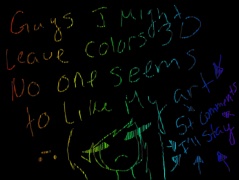 Guys I Might
Leave colors 3D
No one seems
to Like My art
5+ Comments
I'll Stay